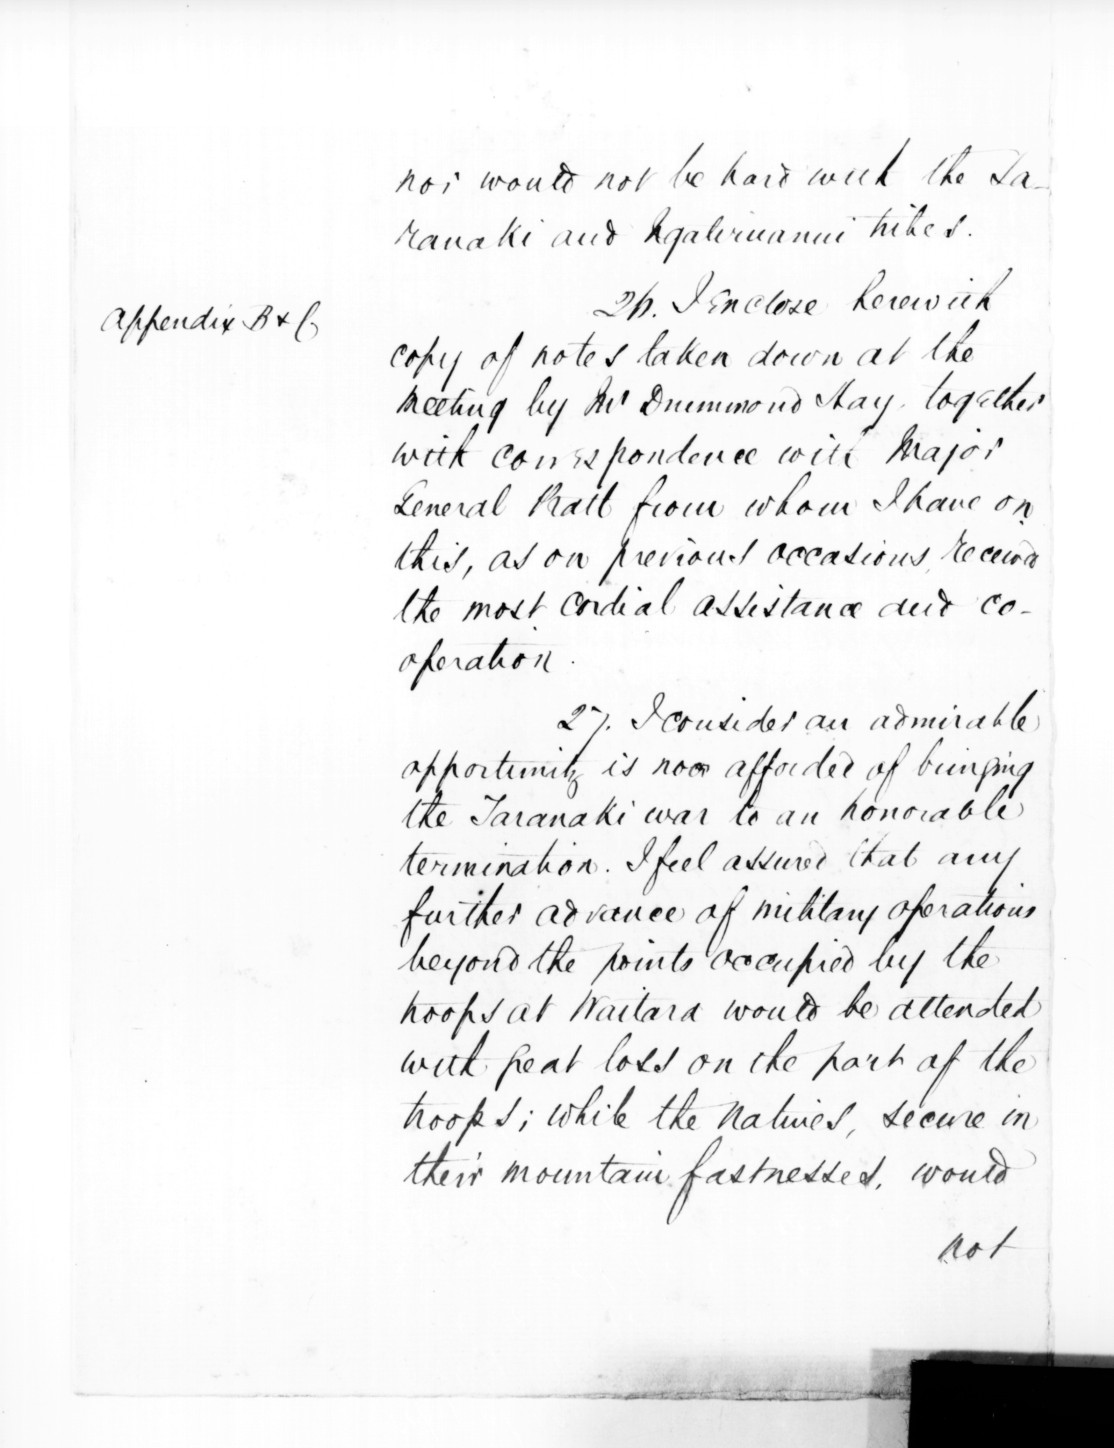 nor would not be hard with the Ta-
ranaki and Ngatiruanui tribes.
26. I enclose herewith
Appendix B & C
copy of notes taken down at the
meeting by Mr Drummond Hay, together
with correspondence with Major
General Pratt from whom I have on
this, as on previous occasions, received
the most cordial assistance and co-
operation.
27. I consider an admirable
opportunity is now afforded of bringing
the Taranaki war to an honorable
termination. I feel assured that any
further advance of military operations
beyond the points occupied by the
troops at Waitara would be attended
with great loss on the part of the
troops; while the Natives, secure in
their mountain fastnesses, would
not